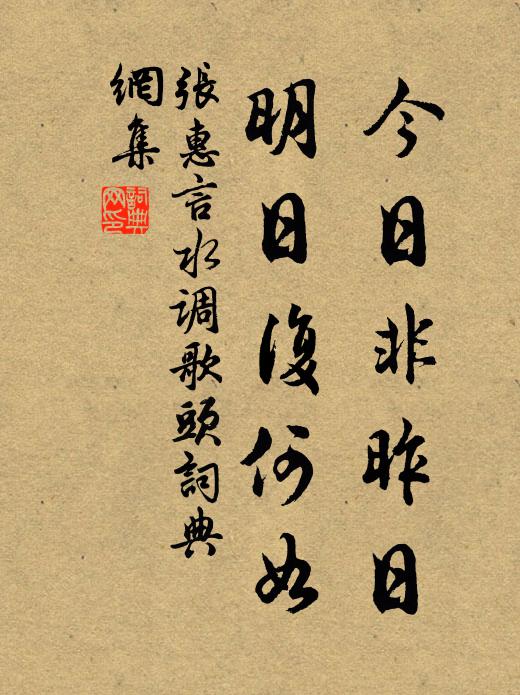 今日非昨日
明日復何如
張惠言水调歌頭詞典
網集
詞典
网印